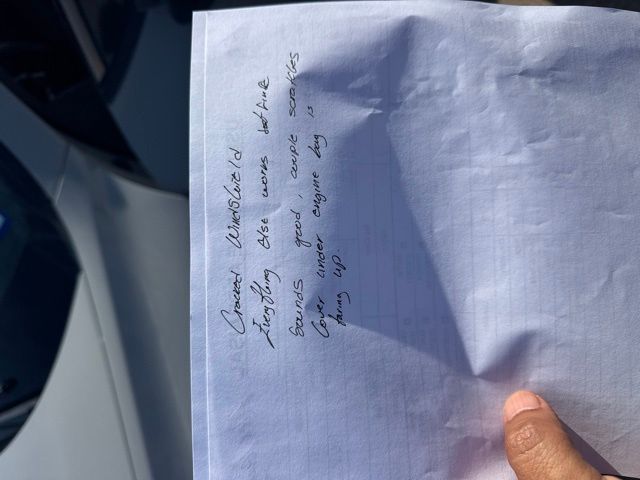 Cracked Windshield
Everything else works but fine
Sounds good, couple scratches
Cover under engine bay is
taring up.